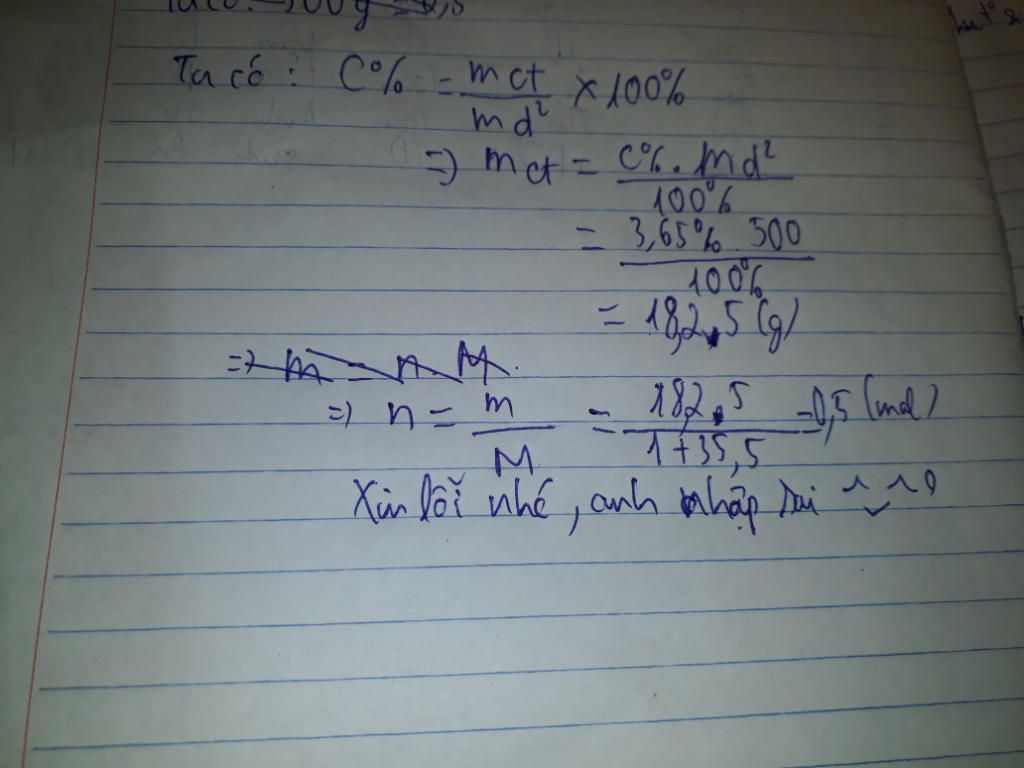 Ta có: 500g = 0,5
Ta có : C% = mct / md² × 100%
=> mct = C% . md² / 100%
= 3,65% . 500 / 100%
= 18,2.5 (g)
=> m = n M.
=> n = m / M = 18,2.5 / 1+35,5 = 0,5 (mol)
Xin lỗi nhé, anh nhập sai